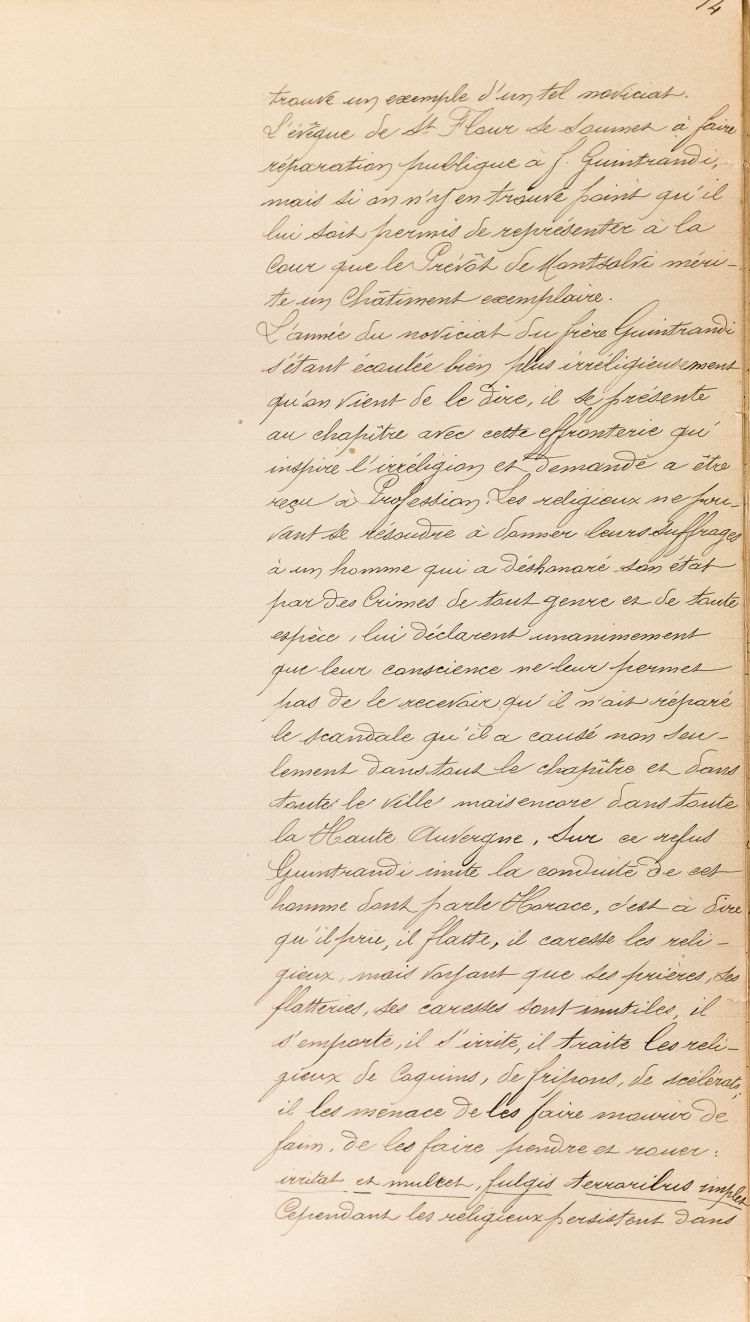 14
trouve un exemple d'un tel noviciat.
L'évêque de St Flour se soumet à faire
réparation publique à f. Guintrandi,
mais si on n'y en trouve point qu'il
lui soit permis de représenter à la
Cour que le Prévôt de Montsalvi méri-
te un Châtiment exemplaire.
L'année du noviciat du frère Guintrandi
s'étant écoulée bien plus irréligieusement
qu'on vient de le dire, il se présente
au chapître avec cette effronterie qu'
inspire l'irréligion et demande a être
reçu à Profession. Les religieux ne pou-
vant se résoudre à donner leurs suffrages
à un homme qui a déshonoré son état
par des Crimes de tout genre et de toute
espèce, lui déclarent unanimement
que leur conscience ne leur permet
pas de le recevoir qu'il n'ait réparé
le scandale qu'il a causé non seu-
lement dans tout le chapître et dans
toute le ville mais encore dans toute
la Haute Auvergne. Sur ce refus
Guintrandi imite la conduite de cet
homme dont parle Horace, c'est à dire
qu'il prie, il flatte, il caresse les reli-
gieux, mais voyant que ses prières, ses
flatteries, ses caresses sont inutiles, il
s'emporte, il s'irrite, il traite les reli-
gieux de Coquins, de fripons, de scélérats,
il les menace de les faire mourir de
faim, de les faire pendre et rouer :
irritat et mulcet, fulgis terroribus implet
Cependant les religieux persistent dans